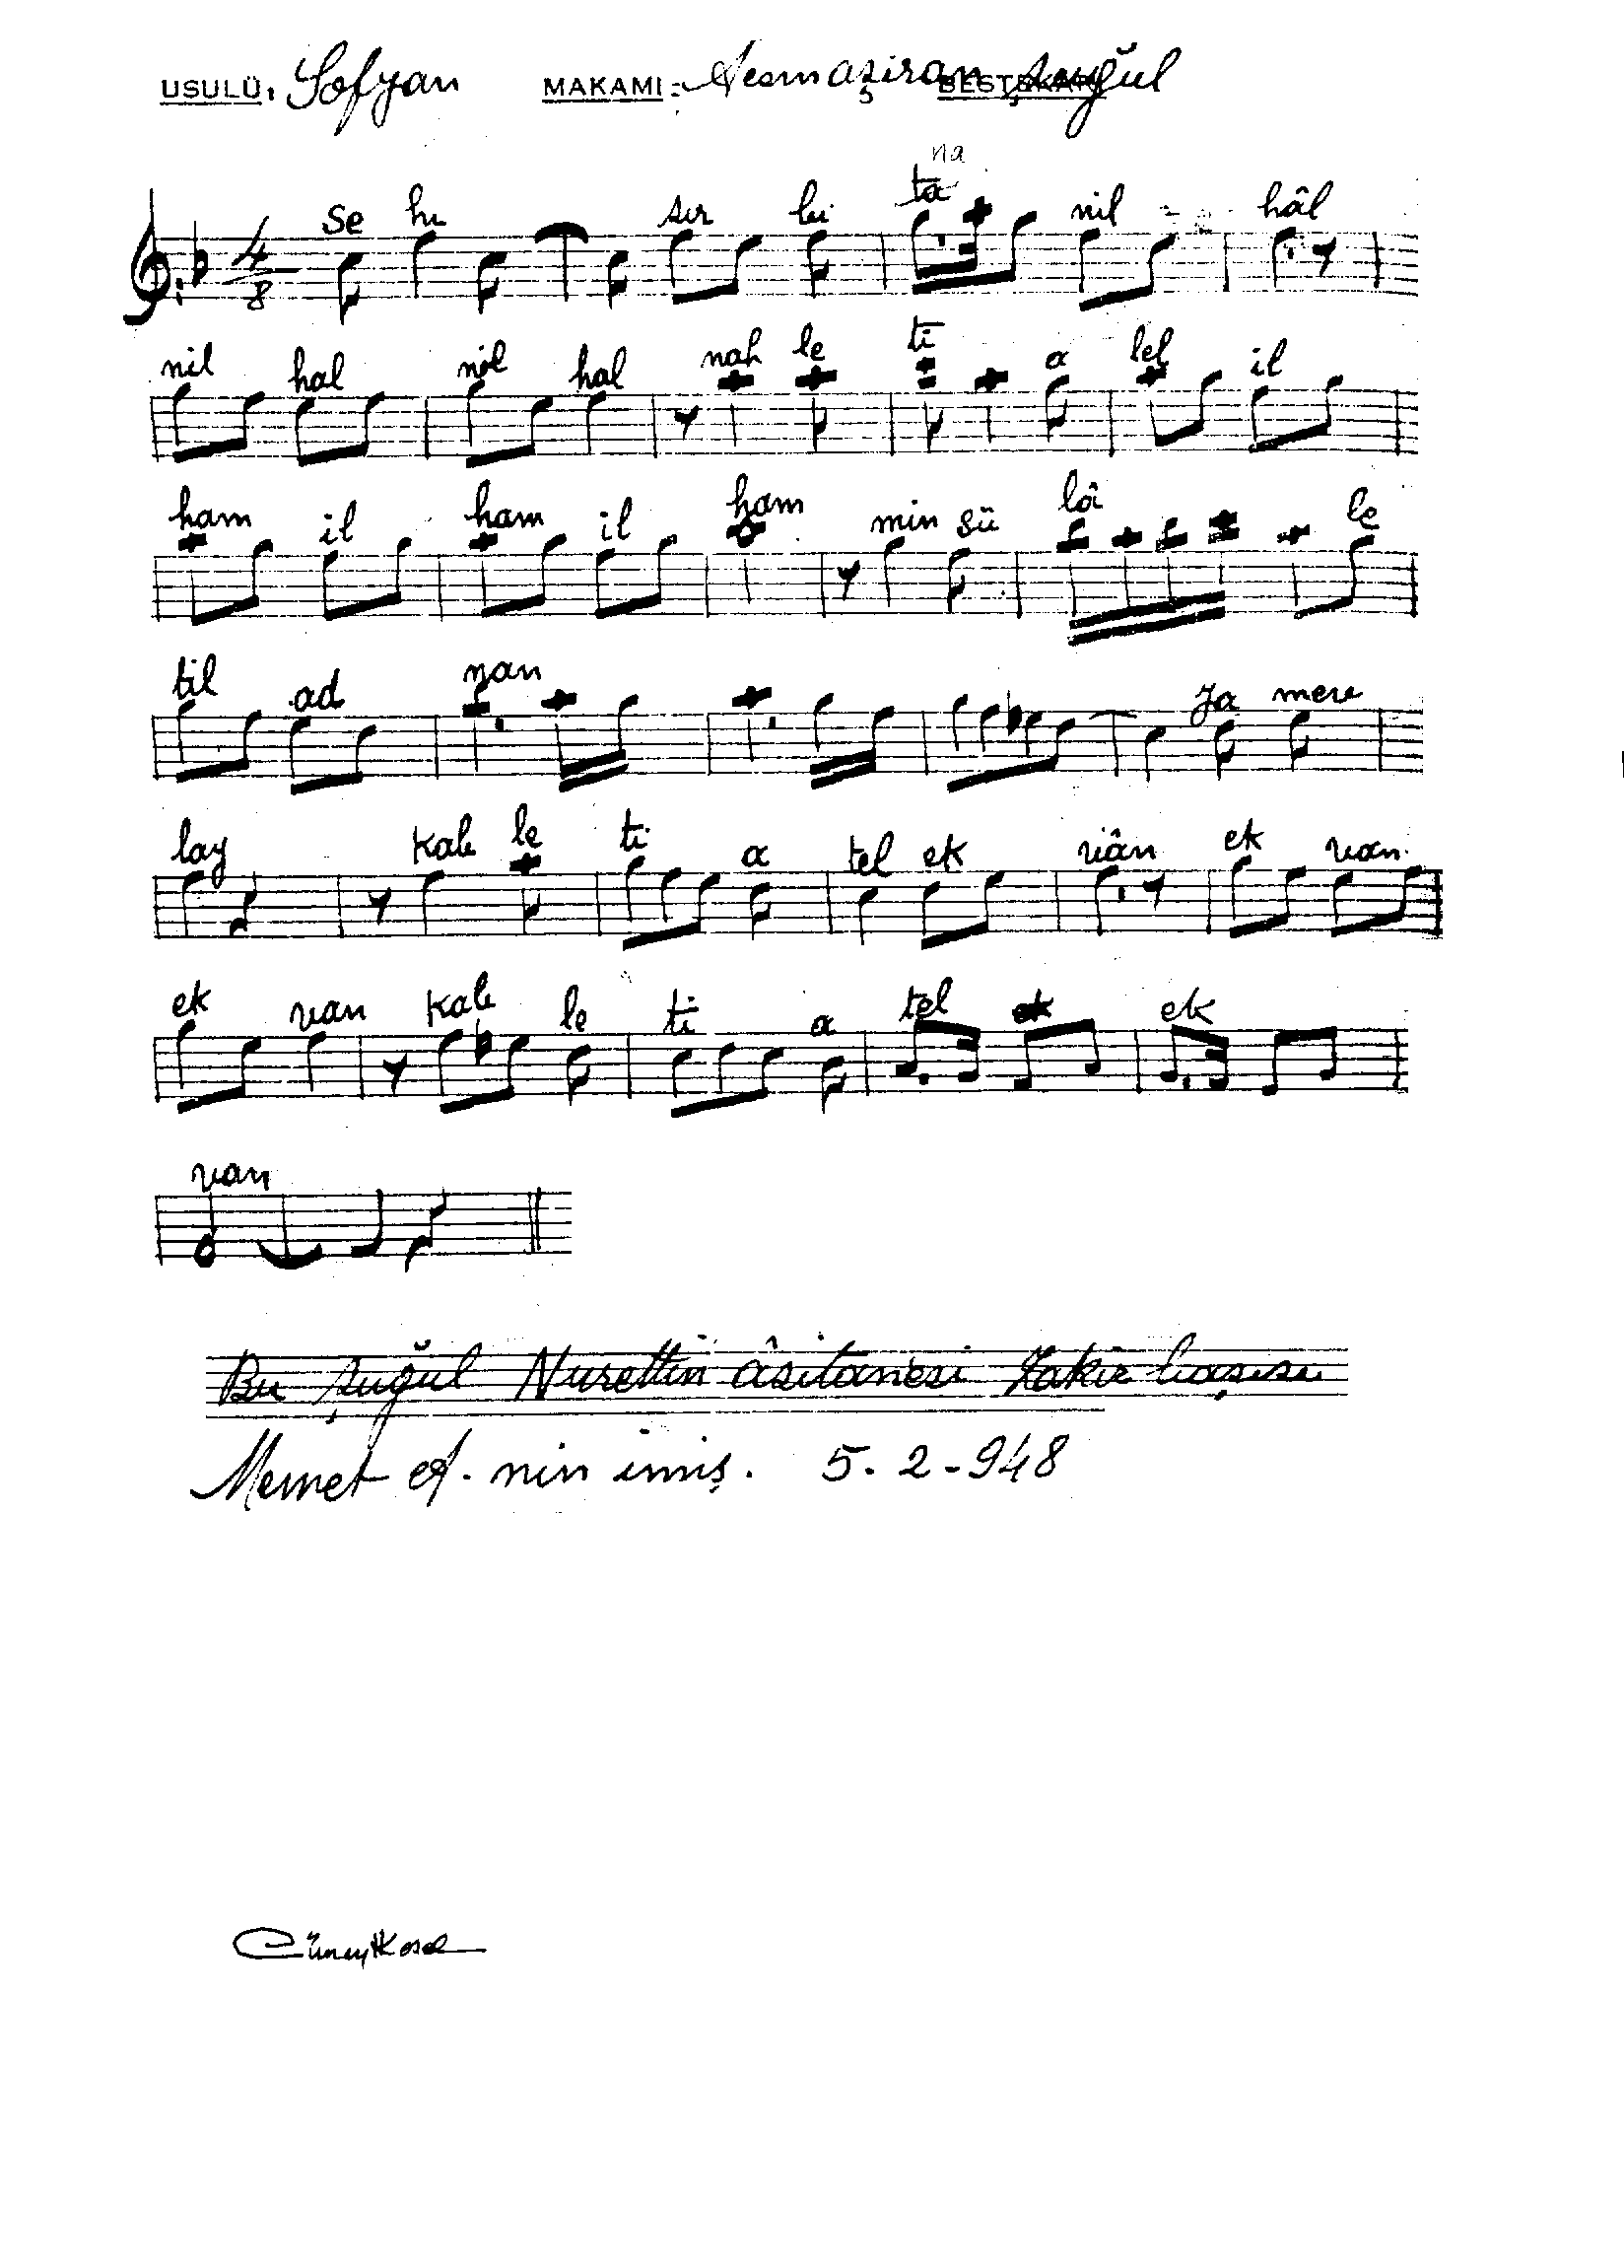 USULÜ: Sofyan MAKAMI: Acemaşiran BESTEKARI şuğul
na
se hu sır lu ta nil hâl
4/8
nil hal nil hal nah le ti a lel il
ham il ham il ham min sü lâ le
til ad nan ya mev
lay kab le ti a tel ek vân ek van
ek van kab le ti a tel ek ek
van
Bu şuğul Nurettin âsitanesi Zakir başısı
Memet ef. nin imiş. 5.2-948
Cüneyt Kosal